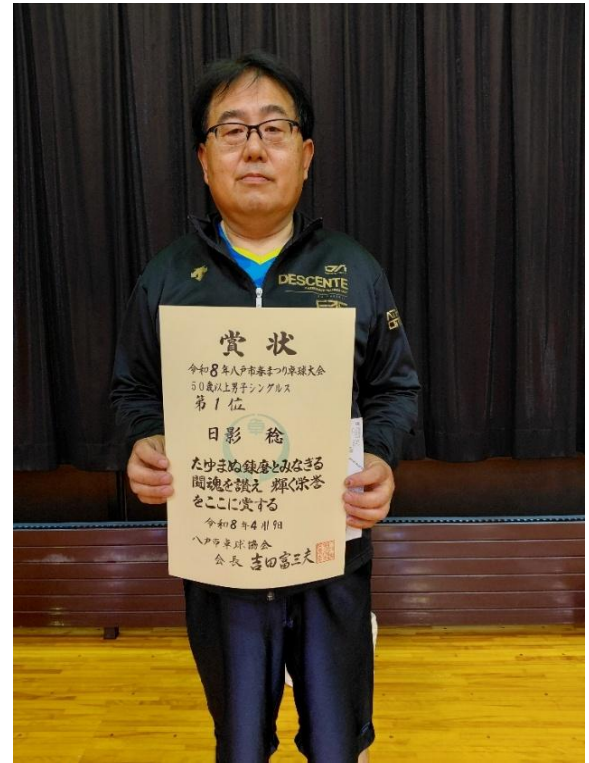 DESCENTE
賞状
令和8年八戸市春まつり卓球大会
50歳以上男子シングルス
第1位
日影 稔
たゆまぬ錬磨とみなぎる
闘魂を讃え 輝く栄誉
をここに賞する
令和8年4月19日
八戸市卓球協会
会長 吉田富三夫